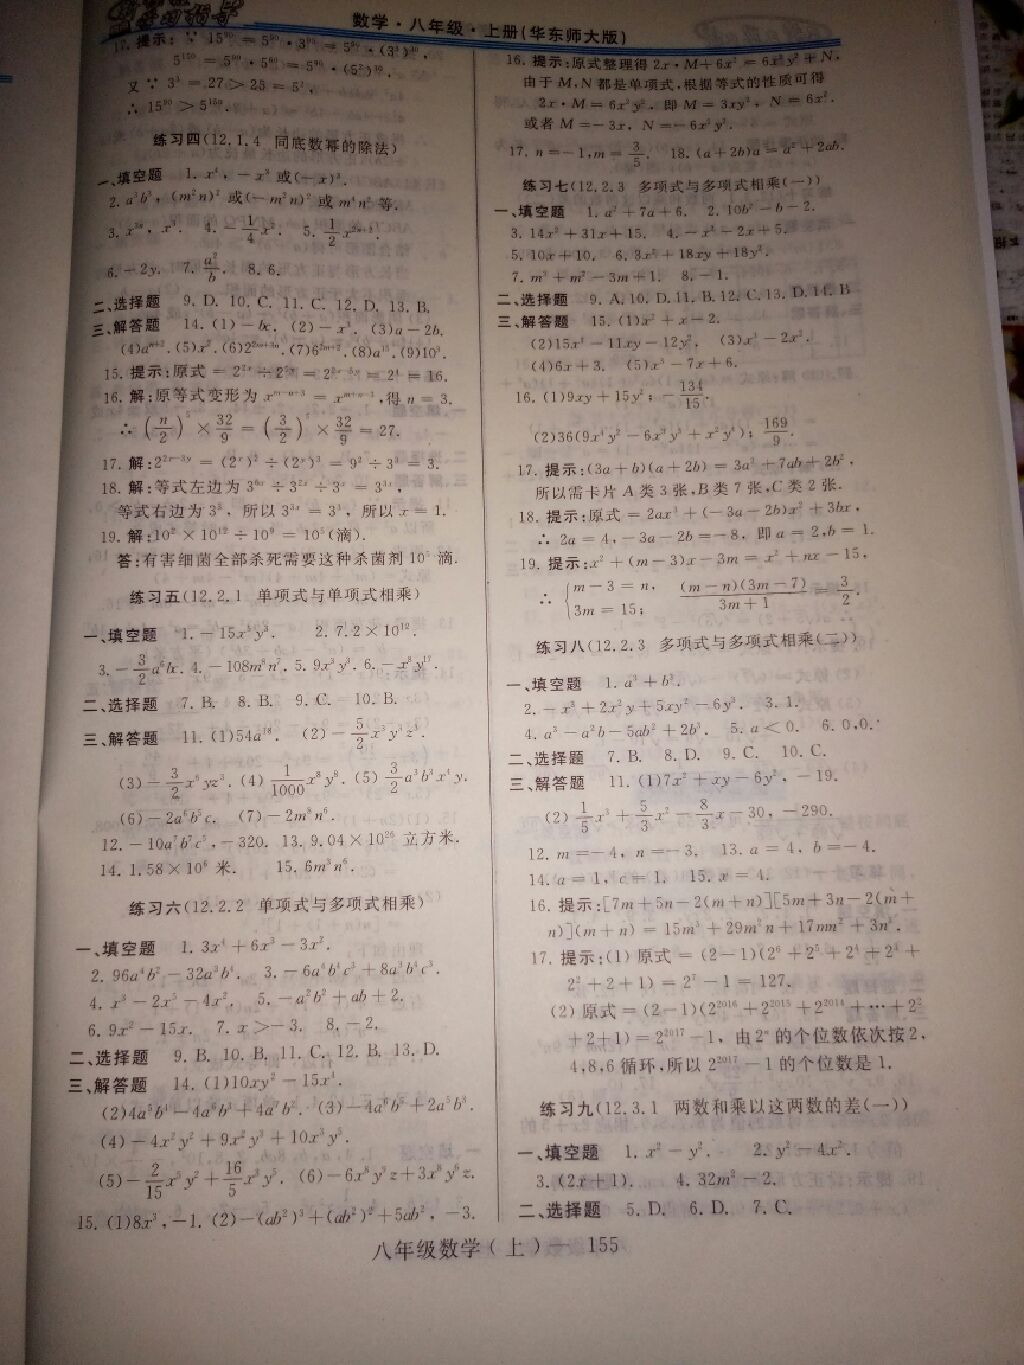 数学·八年级·上册(华东师大版)
17. 提示: ∵ 15⁹⁰ = 5⁹⁰ · 3⁹⁰ = 5⁹⁰ · (3³)³⁰,
5¹⁵⁰ = 5⁹⁰ · 5⁶⁰ = 5⁹⁰ · (5²)³⁰.
又 ∵ 3³ = 27 > 25 = 5²,
∴ 15⁹⁰ > 5¹⁵⁰.
练习四(12.1.4 同底数幂的除法)
一、填空题 1. x⁴, -x³ 或(-x)³.
4. -1/4x². 
6. -2y. 7. a²/b. 8. 6.
二、选择题 9. D. 10. C. 11. C. 12. D. 13. B.
三、解答题 14. (1) -bc. (2) -x³. (3) a-2b.
15. 提示:原式 = = 2⁴ = 16.
16. 解:原等式变形为 ,得 n = 3.
∴ (n/2)⁵ × 32/9 = (3/2)⁵ × 32/9 = 27.
17. 解: = 9² ÷ 3³ = 3.
18. 解:等式左边为
等式右边为 3³, 所以 3³ˣ = 3³, 所以 x = 1.
19. 解:10² × 10¹² ÷ 10⁹ = 10⁵(滴).
答:有害细菌全部杀死需要这种杀菌剂 10⁵ 滴.
练习五(12.2.1 单项式与单项式相乘)
一、填空题 1. -15x³y³. 2. 7.2×10¹².
3. -3/2a⁶bc. 4. -108m⁸n⁷. 5. 9x³y³.
二、选择题 7. B. 8. B. 9. C. 10. B.
三、解答题 11. (1)54a¹⁸. (2) -5/2x³y³z³.
(6) -2a⁶b⁵c. (7) -2m⁸n⁶.
12. -10a⁷b⁷c⁵, -320. 13. 9.04×10²⁶ 立方米.
14. 1.58×10⁶ 米. 15. 6m³n⁶.
练习六(12.2.2 单项式与多项式相乘)
一、填空题 1. 3x⁴ + 6x³ - 3x².
4. x³ - 2x⁵ - 4x². 5. -a²b² + ab + 2.
6. 9x² - 15x. 7. x > -3. 8. -2.
二、选择题 9. B. 10. B. 11. C. 12. B. 13. D.
三、解答题 14. (1)10xy² - 15x⁴.
15. (1)8x³, -1. (2) -(ab²)³ + (ab²)² + 5ab², -3.
16. 提示:原式整理得 2x·M + 6x² = 6x²y² + N.
由于 M,N 都是单项式,根据等式的性质可得
2x·M = 6x²y², 即 M = 3xy², N = 6x².
或者 M = -3x, N = -6x²y².
17. n = -1, m = 3/5. 18. (a+2b)a = a² + 2ab.
练习七(12.2.3 多项式与多项式相乘(一))
一、填空题 1. a² + 7a + 6. 2. 10b² - b - 2.
3. 14x² + 31x + 15. 4. -x² - 2x + 5.
5. 10x + 10. 6. 3x² + 18xy + 18y².
7. m³ + m² - 3m + 1. 8. -1.
二、选择题 9. A. 10. D. 11. B. 12. C. 13. D. 14. B
三、解答题 15. (1)x² + x - 2.
(2)15x² - 11xy - 12y². (3)x⁴ - 2x².
(4)6x + 3. (5)x³ - 7x + 6.
16. (1)9xy + 15y²; -134/15.
(2)36(9x⁴y² - 6x³y³ + x²y⁴); 169/9.
17. 提示:(3a+b)(a+2b) = 3a² + 7ab + 2b²,
所以需卡片 A 类 3 张,B 类 7 张,C 类 2 张.
18. 提示:原式 = 2ax³ + (-3a-2b)x² + 3bx,
∴ 2a = 4, -3a-2b = -8, 即 a = 2, b = 1.
19. 提示:x² + (m-3)x - 3m = x² + nx - 15,
∴ { m-3 = n, 3m = 15; (m-n)(3m-7)/(3m+1) = 3/2.
练习八(12.2.3 多项式与多项式相乘(二))
一、填空题 1. a³ + b³.
2. -x³ + 2x²y + 5xy² - 6y³. 3. 1.
4. a³ - a²b - 5ab² + 2b³. 5. a < 0. 6. 0,0.
二、选择题 7. B. 8. D. 9. C. 10. C.
三、解答题 11. (1)7x² + xy - 6y², -19.
(2) 1/5x³ + 5/3x² - 8/3x - 30, -290.
12. m = -4, n = -3. 13. a = 4, b = -4.
14. a = 1, c = 1. 15. x = 4.
16. 提示:[7m+5n-2(m+n)][5m+3n-2(m+
n)](m+n) = 15m³ + 29m²n + 17mn² + 3n³.
17. 提示:(1) 原式 = (2-1)(2⁶ + 2⁵ + 2⁴ + 2³ +
2² + 2 + 1) = 2⁷ - 1 = 127.
(2) 原式 = (2-1)(2²⁰¹⁶ + 2²⁰¹⁵ + 2²⁰¹⁴ + … + 2²
+2+1) = 2²⁰¹⁷ - 1, 由 2ⁿ 的个位数依次按 2,
4,8,6 循环,所以 2²⁰¹⁷ - 1 的个位数是 1.
练习九(12.3.1 两数和乘以这两数的差(一))
一、填空题 1. x² - y². 2. y² - 4x².
3. (2x+1). 4. 32m² - 2.
二、选择题 5. D. 6. D. 7. C.
八年级数学(上)— 155